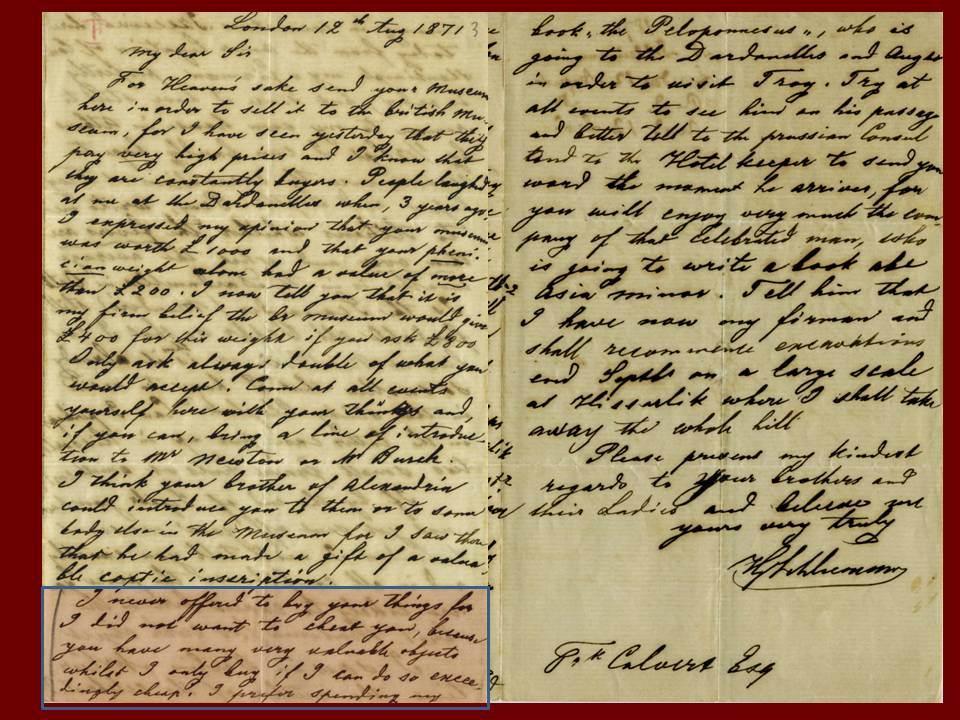 London 12th Aug 1871
My dear Sir
For Heaven's sake send your Museum
here in order to sell it to the british Mu-
seum, for I have seen yesterday that they
pay very high prises and I know that
they are constantly buyers. People laughed
at me at the Dardanelles when, 3 years ago
I expressed my opinion that your museum
was worth £1000 and that your pheni-
cian weight alone had a value of more
than £200. I now tell you that it is
my firm belief the Br museum would give
£400 for this weight if you ask £800
Only ask always double of what you
would accept. Come at all events
yourself here with your things and,
if you can, bring a line of introduc-
tion to Mr Newton or Mr Burch.
I think your brother of Alexandria
could introduce you to them or to some
body else in the Museum for I saw there
that he had made a gift of a valua-
ble coptic inscription.
I never offered to buy your things for
I did not want to cheat you, because
you have many very valuable objects
whilst I only buy if I can do so excee-
dingly cheap. I prefer spending my
book "the Peloponnesus", who is
going to the Dardanelles and
in order to visit Troy. Try at
all events to see him on his passage
and better tell to the prussian Consul
and to the Hotel keeper to send you
word the moment he arrives, for
you will enjoy very much the com-
pany of that celebrated man, who
is going to write a book abt
Asia minor. Tell him that
I have now my firman and
shall recommence excavations
end Septbr on a large scale
at Hissarlik where I shall take
away the whole hill
Please present my kindest
regards to your brothers and
their Ladies and believe me
yours very truly
HySchliemann
Frk Calvert Esq